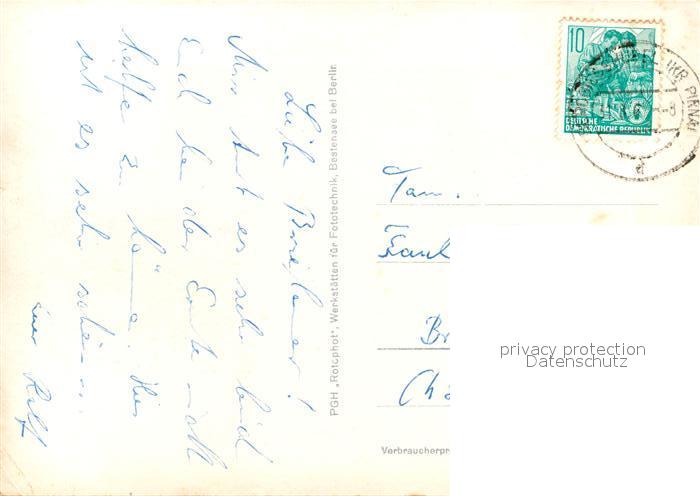 Liebe Breitauer!
Mir tut es sehr leid
Euch bei der Ernte nicht
helfen zu können. Hier
ist es sehr schön.
Euer Rolf
PGH „Rotophot", Werkstätten für Fototechnik, Bestensee bei Berlin.
10
DEUTSCHE
DEMOKRATISCHE REPUBLIK
PIRNA
Fam.
Br
Verbraucherpr
privacy protection
Datenschutz